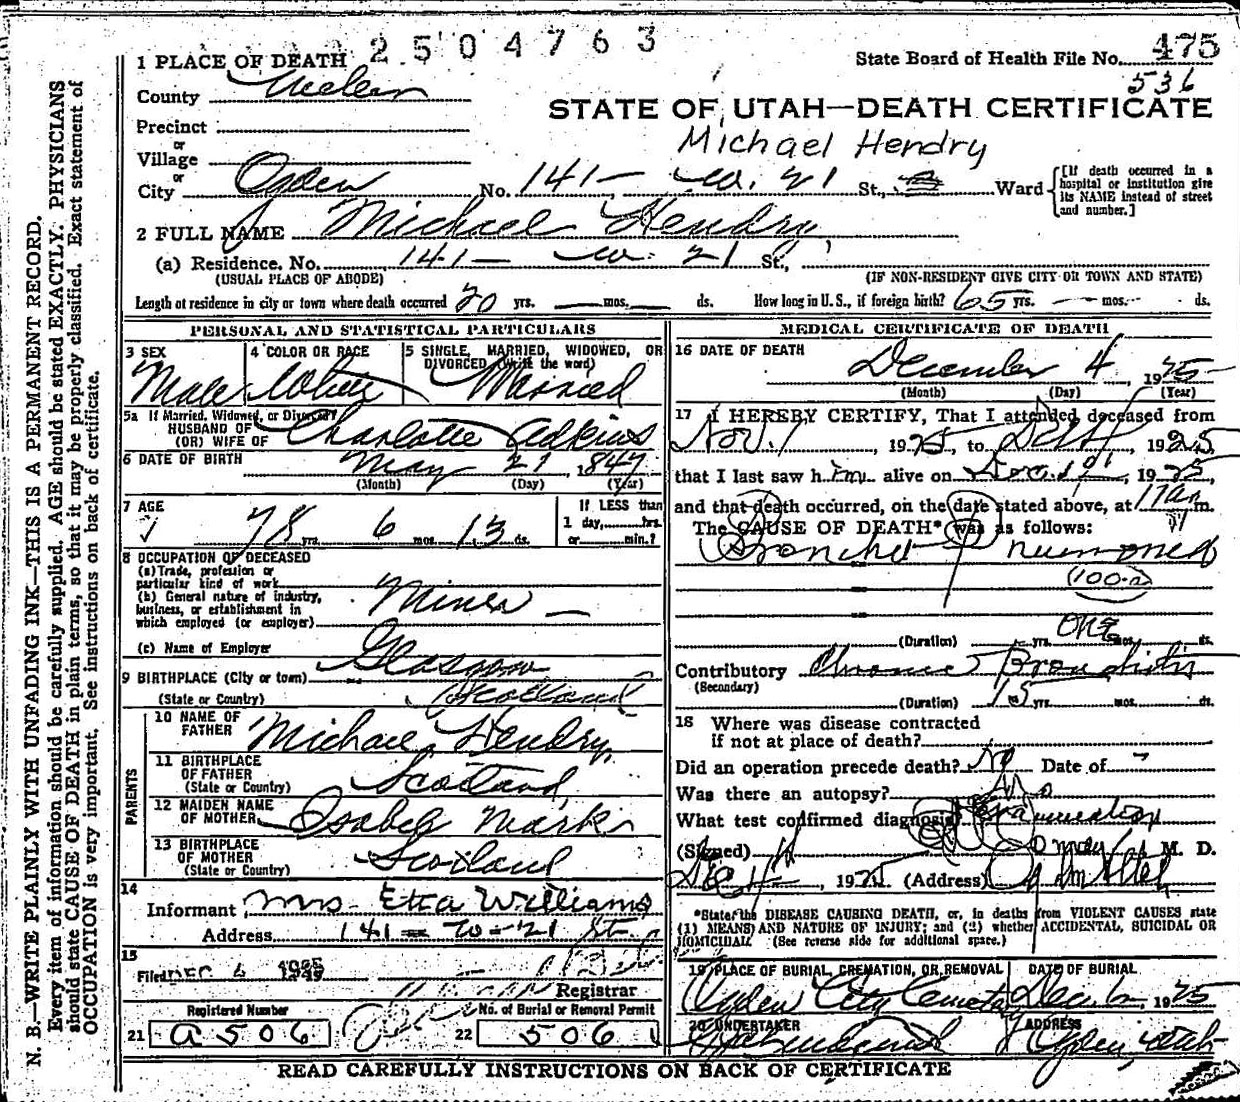 2504763
State Board of Health File No. 475
536
1 PLACE OF DEATH
County Weber
STATE OF UTAH—DEATH CERTIFICATE
Precinct
or
Michael Hendry
Village
or
City Ogden No. 141- W. 21 St., Ward
[If death occurred in a hospital or institution give its NAME instead of street and number.]
2 FULL NAME Michael Hendry
(a) Residence. No. 141- W. 21 St.,
(USUAL PLACE OF ABODE) (IF NON-RESIDENT GIVE CITY OR TOWN AND STATE)
Length of residence in city or town where death occurred 20 yrs. mos. ds. How long in U. S., if foreign birth? 65 yrs. mos. ds.
PERSONAL AND STATISTICAL PARTICULARS
3 SEX
Male
4 COLOR OR RACE
White
5 SINGLE, MARRIED, WIDOWED, OR DIVORCED (Write the word)
Married
5a If Married, Widowed, or Divorced
HUSBAND OF
(OR) WIFE OF Charlotte Adkins
6 DATE OF BIRTH May 21, 1847
(Month) (Day) (Year)
7 AGE
78 yrs. 6 mos. 13 ds.
If LESS than
1 day, hrs.
or min.?
8 OCCUPATION OF DECEASED
(a) Trade, profession or
particular kind of work
(b) General nature of industry,
business, or establishment in
which employed (or employer)
Miner
(c) Name of Employer
9 BIRTHPLACE (City or town) Glasgow
(State or Country) Scotland
PARENTS
10 NAME OF FATHER Michael Hendry
11 BIRTHPLACE OF FATHER
(State or Country) Scotland
12 MAIDEN NAME OF MOTHER Isabell Marks
13 BIRTHPLACE OF MOTHER
(State or Country) Scotland
14
Informant Mrs Etta Williams
Address 141 W-21 St
15
Filed DEC 4
Registrar
Registered Number
21 a 506
No. of Burial or Removal Permit
22 506
MEDICAL CERTIFICATE OF DEATH
16 DATE OF DEATH
December 4, 1925
(Month) (Day) (Year)
17 I HEREBY CERTIFY, That I attended deceased from
Nov. 1, 1925 to Dec 4, 1925
that I last saw him alive on Dec. 1925
and that death occurred, on the date stated above, at m.
The CAUSE OF DEATH* was as follows:
Bronchial Pneumonia
(100-a)
(Duration) yrs. one mos. ds.
Contributory Chronic Bronchitis
(Secondary)
(Duration) 15 yrs. mos. ds.
18 Where was disease contracted
if not at place of death?
Did an operation precede death? No Date of
Was there an autopsy? No
What test confirmed diagnosis? Examination
(Signed) M. D.
Dec 4, 1925 (Address) Ogden Utah
*State the DISEASE CAUSING DEATH, or, in deaths from VIOLENT CAUSES state
(1) MEANS AND NATURE OF INJURY; and (2) whether ACCIDENTAL, SUICIDAL OR
HOMICIDAL (See reverse side for additional space.)
19 PLACE OF BURIAL, CREMATION, OR REMOVAL
Ogden City Cemetery
DATE OF BURIAL
Dec 6, 1925
20 UNDERTAKER
ADDRESS
Ogden, Utah
READ CAREFULLY INSTRUCTIONS ON BACK OF CERTIFICATE
N. B.—WRITE PLAINLY WITH UNFADING INK—THIS IS A PERMANENT RECORD.
Every item of information should be carefully supplied. AGE should be stated EXACTLY. PHYSICIANS
should state CAUSE OF DEATH in plain terms, so that it may be properly classified. Exact statement of
OCCUPATION is very important. See instructions on back of certificate.